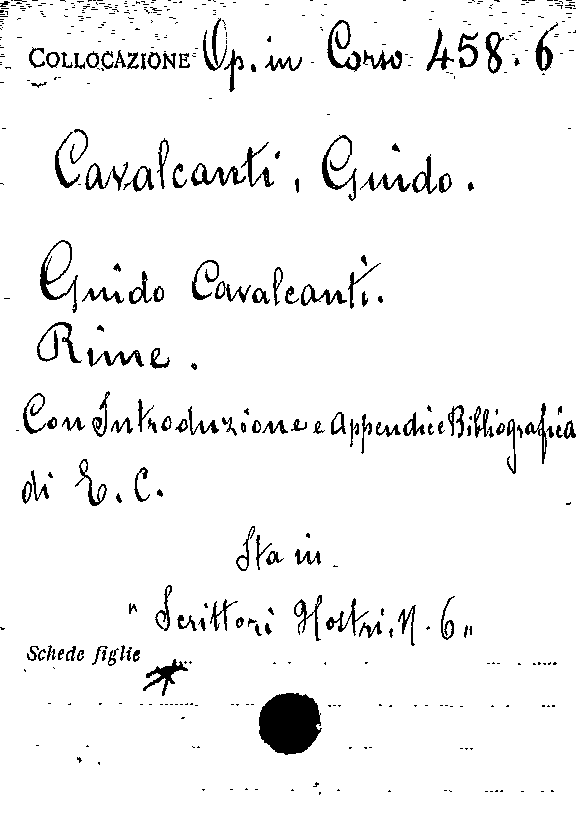 COLLOCAZIONE Op. in Corso 458.6
Cavalcanti, Guido.
Guido Cavalcanti.
Rime.
Con Introduzione e Appendice Bibliografica
di E. C.
Sta in
"Scrittori Nostri, N. 6"
Schede figlie